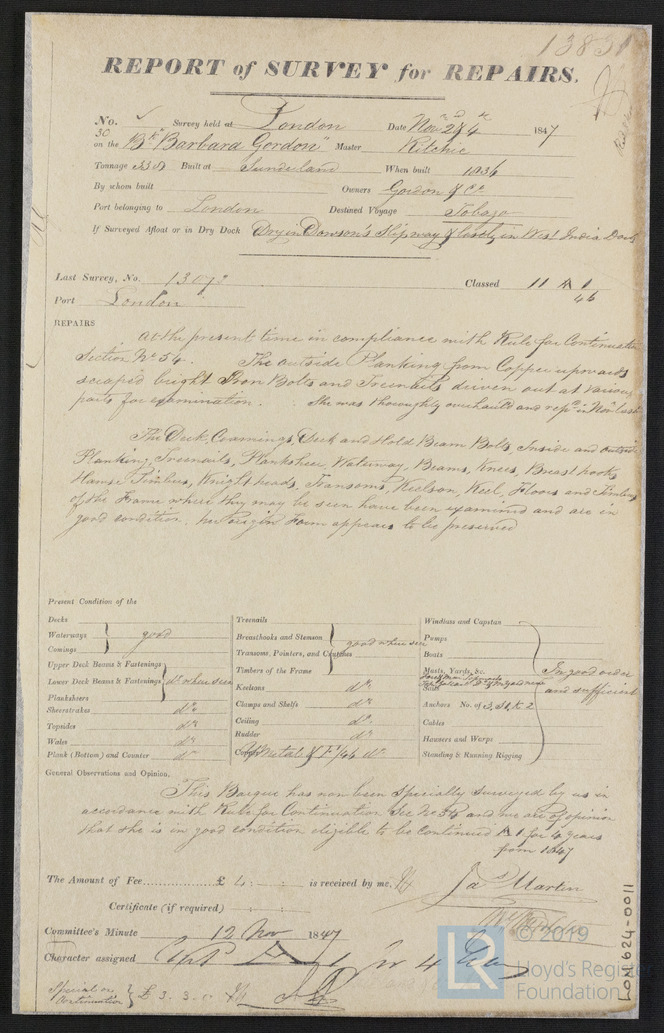 13831
REPORT of SURVEY for REPAIRS.
No. 30 Survey held at London Date Nov 2d & 4th 1847
on the Bk "Barbara Gordon" Master Ritchie
Tonnage 338 Built at Sunderland When built 1836
By whom built Owners Gordon & Co
Port belonging to London Destined Voyage Tobago
If Surveyed Afloat or in Dry Dock Dry in Dowson's Slipway & lastly in West India Dock
Last Survey, No. 1307 Classed 11 A 1
Port London 46
REPAIRS
At the present time in compliance with Rule for Continuation
Section No 54. The outside Planking from Copper upwards
scraped bright Iron Bolts and Treenails driven out at various
parts for examination. She was thoroughly overhauld and repd in Nov last
The Deck, Comings, Deck and Hold Beam Bolts, Inside and outside
Planking, Treenails, Planksheer, Waterway, Beams, Knees, Breasthooks,
Hawse Timbers, Knightheads, Transoms, Keelson, Keel, Floors and Timbers
of the Frame where they may be seen have been examined and are in
good condition. her origin Form appears to be preserved
Present Condition of the
Decks
Waterways good
Comings
Upper Deck Beams & Fastenings
Lower Deck Beams & Fastenings do where seen
Planksheers
Sheerstrakes do
Topsides do
Wales do
Plank (Bottom) and Counter do
Treenails
Breasthooks and Stemson good where seen
Transoms, Pointers, and Crutches
Timbers of the Frame
Keelsons do
Clamps and Shelfs do
Ceiling do
Rudder do
Copper Y Metal & F 1/46 do
Windlass and Capstan
Pumps
Boats
Masts, Yards, &c. In good order
Sails and sufficient
Anchors No. of 3, S 1 K 2
Cables
Hawsers and Warps
Standing & Running Rigging
General Observations and Opinion.
This Barque has now been Specially Surveyed by us in
accordance with Rule for Continuation Sec No 54 and we are of opinion
that she is in good condition eligible to be Continued A 1 for 4 years
from 1847
The Amount of Fee £ 4 : is received by me,
Jas Martin
Certificate (if required)
Committee's Minute 12 Nov 1847
Character assigned A 1 for 4
Special on Continuation } £ 3. 3. 0
LON 624-0011
LR
© 2019
Lloyd's Register
Foundation